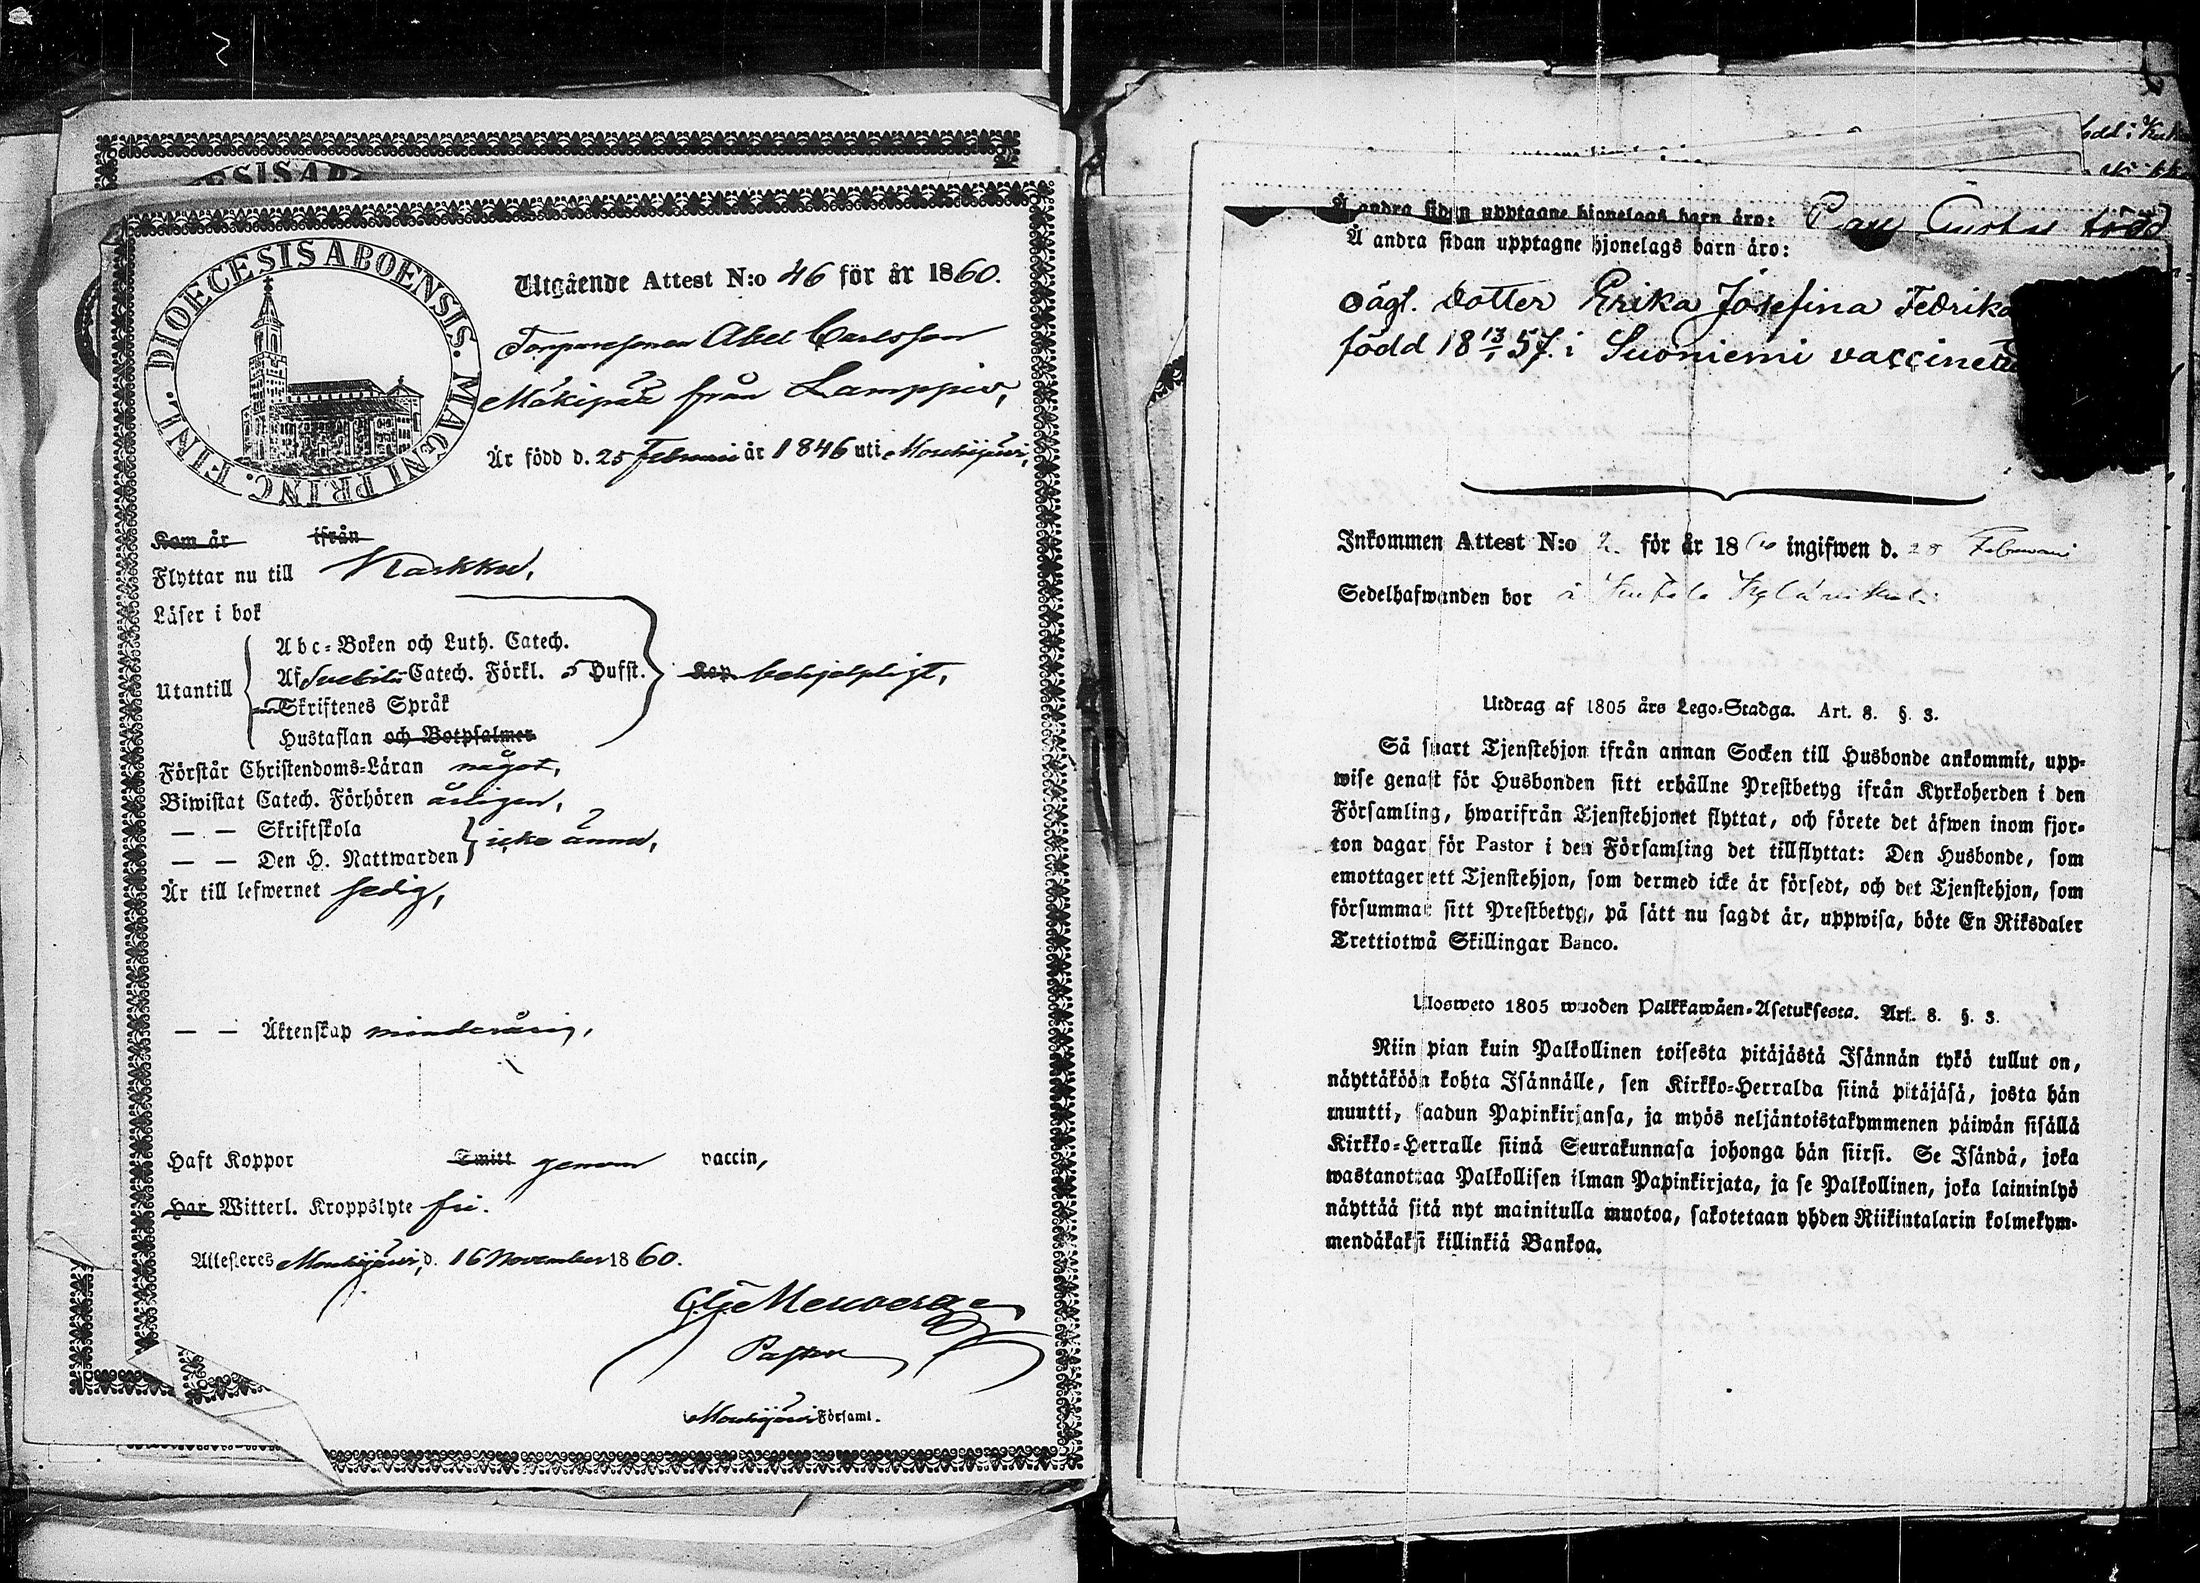 DIOECESIS ABOENSIS. MAGNI PRINC. FINL.
Utgående Attest N:o 46 för år 1860.
Torparesonen Abel Carlsson
Mäkipää från Lamppio,
Är född d. 25 Februari år 1846 uti Mouhijärvi,
Kom år ifrån
Flyttar nu till Karkku,
Läser i bok
Utantill
Abc-Boken och Luth. Catech.
Af Svebilii Catech. Förkl. 5 Hufst.
Skriftenes Språk
Hustaflan och Botpsalmer
behjelpligt,
Förstår Christendoms-Läran något,
Biwistat Catech. Förhören årligen,
— — Skriftskola
— — Den H. Nattwarden
icke ännu,
Är till lefwernet sedig,
— — Äktenskap minderårig,
Haft Koppor Smitt genom vaccin,
Har Witterl. Kroppslyte fri.
Attesteres Mouhijärvi, d. 16 November 1860.
Pastor
Mouhijärvi Församl.
Å andra sidan upptagne hjonelags barn äro: Gustaf född
Å andra sidan upptagne hjonelags barn äro:
oägt. dotter Erika Josefina Fedrika
född 18 13/1 57. i Suoniemi vaccinerad
Inkommen Attest N:o 2. för år 1860 ingifwen d. 28 Februari
Sedelhafwanden bor i
Utdrag af 1805 års Lego-Stadga. Art. 8. §. 3.
Så snart Tjenstehjon ifrån annan Socken till Husbonde ankommit, upp-
wise genast för Husbonden sitt erhållne Prestbetyg ifrån Kyrkoherden i den
Församling, hwarifrån Tjenstehjonet flyttat, och förete det äfwen inom fjor-
ton dagar för Pastor i den Församling det tillflyttat: Den Husbonde, som
emottager ett Tjenstehjon, som dermed icke är försedt, och det Tjenstehjon, som
försummar sitt Prestbetyg, på sätt nu sagdt är, uppwisa, böte En Riksdaler
Trettiotwå Skillingar Banco.
Ulosweto 1805 wuoden Palkkawäen-Asetuksesta. Art. 8. §. 3.
Niin pian kuin Palkollinen toisesta pitäjästä Isännän tykö tullut on,
näyttäköön kohta Isännälle, sen Kirkko-Herralda siinä pitäjäsä, josta hän
muutti, saadun Papinkirjansa, ja myös neljäntoistakymmenen päiwän sisällä
Kirkko-Herralle siinä Seurakunnasa johonga hän siirsi. Se Isändä, joka
wastanottaa Palkollisen ilman Papinkirjata, ja se Palkollinen, joka laiminlyö
näyttää sitä nyt mainitulla muotoa, sakotetaan yhden Riikintalarin kolmekym-
mendäkaksi killinkiä Bankoa.